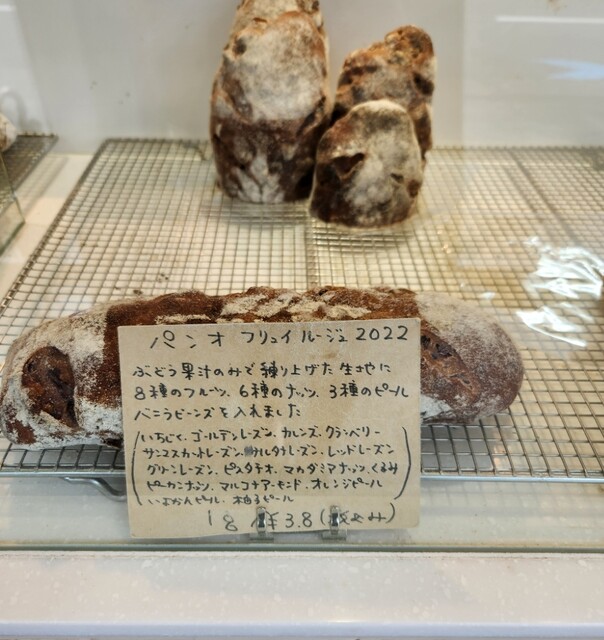 パンオ フリュイルージュ 2022
ぶどう果汁のみで練り上げた生地に
8種のフルーツ、6種のナッツ、3種のピール
バニラビーンズを入れました
(いちじく、ゴールデンレーズン、カレンズ、クランベリー
サンマスカットレーズン、サルタナレーズン、レッドレーズン
グリーンレーズン、ピスタチオ、マカダミアナッツ、くるみ
ピーカンナッツ、マルコナアーモンド、オレンジピール
いよかんピール、柚子ピール)
1g ¥3.8(税込み)